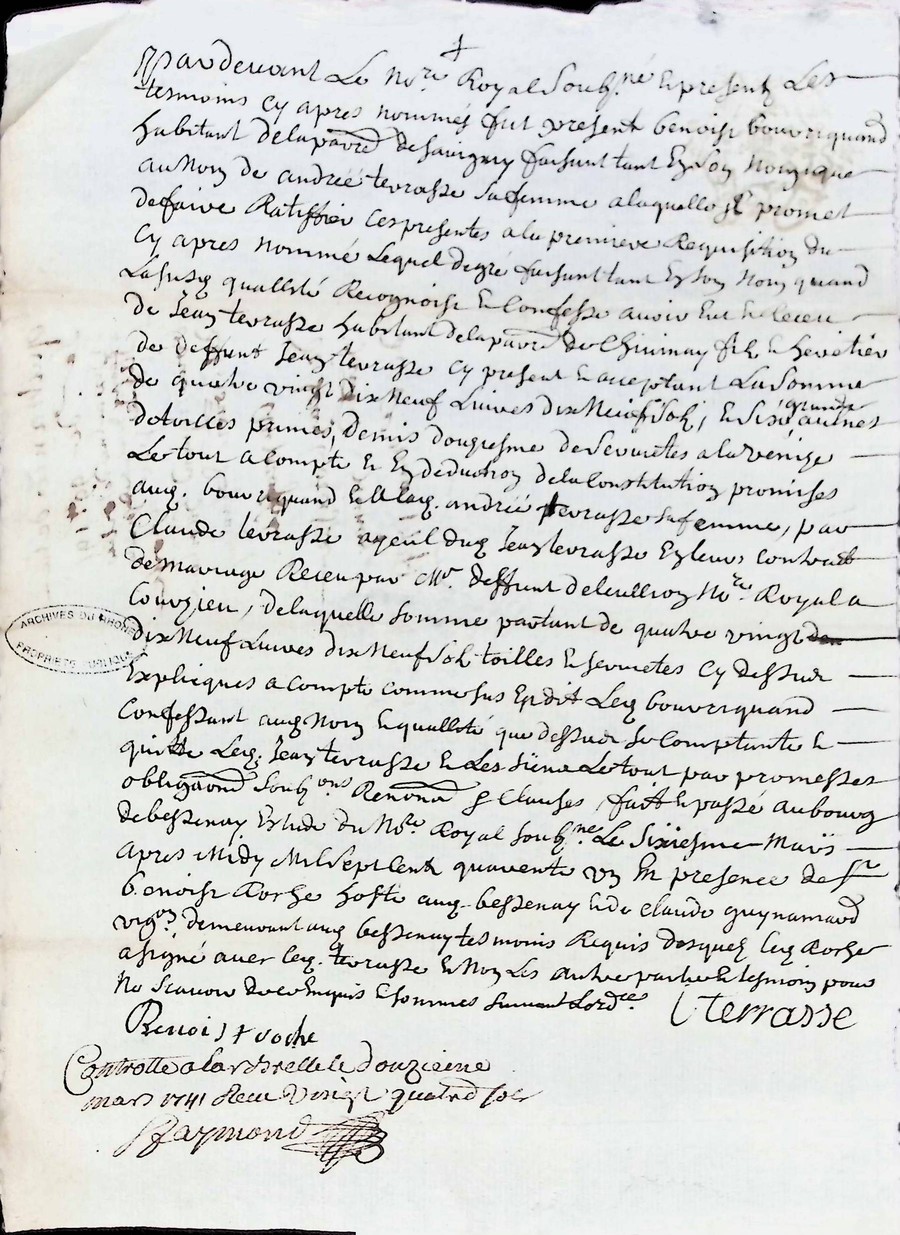 †
Pardevant Le No.re Royal Soub.né En presents Les
tesmoins Cy apres nommés fut present benoist bouvet quand
habitant dela parre de Savigny faisant tant En son nom que
au Nom de andrée terrasse sa femme a laquelle Il promet
de faire Ratiffier Ces presentes a la premiere Requisition du
Cy apres nommé Lequel degré faisant tant En son nom quand
La susq quallité Recognoist Et Confesse avoir Eut Et Receu
de Jean terrasse habitant dela parre de Chivinay fils Et heretier
de deffunt Jean terrasse Cy present Et acceptant La Somme
de quatre vingt dix Neuf Livres dix Neuf Sols, Et Six aulnes
grande
de toilles primes, demis dougesme de Serviettes a la Venise
Le tout a Compte Et En deduction dela Constitution promises
auq. bouvet quand Et a Lad. andrée terrasse sa femme, par
Claude terrasse ayeul duq Jean terrasse En leur Contract
de mariage Receu par Me. deffunt No.re Royal a
Courzieu, de laquelle Somme partant de quatre vingt
dix Neuf Livres dix Neuf Sols toilles Et serviettes Cy dessus
Expliques a Compte Comme sus Est dit Leq bouvet quand
Confessant auq Nom Et quallité que dessus se Comptante Et
quitte Leq. Jean terrasse Et Les Siens Le tout par promesses
obligaons Soub.ons Renonon & Clauses, fait Et passé au bourg
de bessenay Estude du No.re Royal Soub.né Le Sixiesme Mars
apres Midy Mil Sept Cent quarante un En presence de Sr
benoist Roche hoste auq. bessenay Et de Claude guynamard
vigon demeurant auq bessenay tesmoins Requis desquels Leq Roche
a signé avec Leq. terrasse Et Non Les autre partie Et tesmoin pour
Ne Scavoir de ce Enquis Et sommés suivant Lordce.
J terrasse
Benoist roche
Controllé a larbrelle le douzieme
mars 1741 Receu vingt quatre sols
Raymond
ARCHIVES DU RHONE
PROPRIETE PUBLIQUE